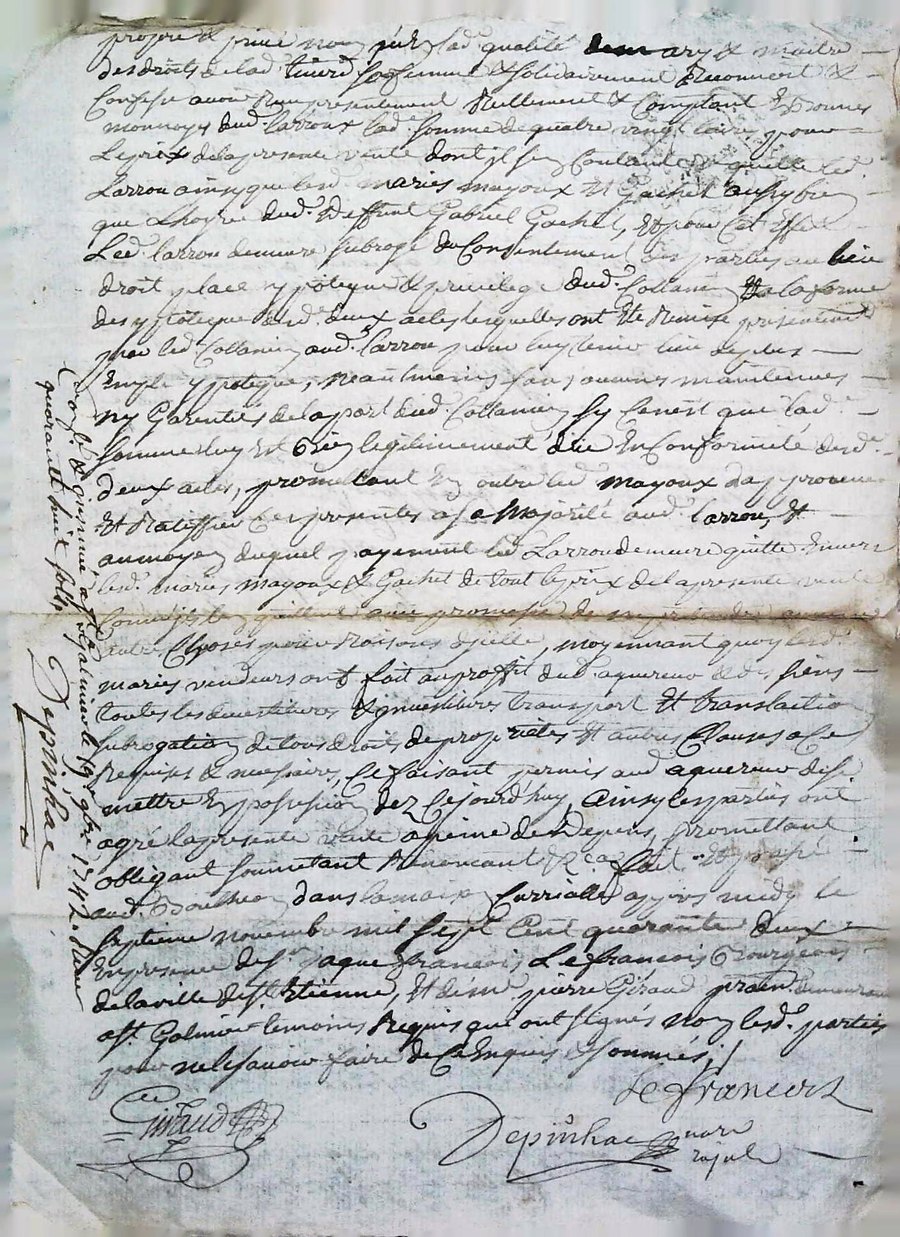 propre & privé nom qu'en lad. qualité de mary & maitre
des droits de lad. solidairement reconnoit &
Confesse avoir reçu presentement reellement & Comptant en bonnes
monnoyes dud. Larroux lad. somme de quatre vingt livres pour
Le prix de la presente vente dont il se Contante & quitte led.
Larrou ainsy que lesd. mariés mayoux Et Gachet aussy bien
que L'hoyrie dud. deffunt Gabriel Gachet, Et pour Cet Effet
Led. Larrou demeure subrogé du Consentement des parties au lieu
droit place ypoteque & privilege dud. Collanie de la somme
des ypoteques desd. deux actes lesquelles ont Eté Remise presentement
par led. Collanie aud. Larrou pour luy tenir lieu de plus
Emple ypoteque, neantmoins sans aucunes maintenues
ny Garenties de la part dud. Collanie sy Cen'est que lad.
somme luy Est bien legitimement düe En Conformité desd.
deux actes, promettant En outre led. mayoux d'approuver
Et Ratiffier Ces presentes a sa Majorité aud. Larrou, Et
au moyen duquel payement led. Larrou demeure quitte Envers
lesd. mariés mayoux & Gachet de tout le prix de la presente vente
promesse de
autre Choses pour Raisons d'jcelle, moyennant quoy lesd.
mariés vendeurs ont fait au proffit dud. aquereur & des siens
toutes les devestitures & jnvestitures transport Et translaction
subrogation de tous droits de proprietés Et autres Clauses a Ce
requises & necessaires, Ce faisant permis aud. aquereur de se
mettre En possession dez Cejourd'huy, Ainsy les parties ont
agré la presente vente a peine de Depens, promettant
obligeant soumetant Renoncant &ca. fait Et passé
aud. dans la maison Curialle apprès midy le
septieme novembre mil sept Cent quarante deux
En presence de Sr. Jaque francois Lefrancois Bourgeois
de la ville de St. Etienne, Et de Me. pierre Giraud praticien demeurant
a St. Galmier temoins Requis qui ont signés non lesd. parties
pour ne le scavoir faire de Ce Enquis & sommés./
Lefrancois
Giraud
Depinhac nore
royal
Con. & jnsinué a St. galmier le 19e. 9bre 1742. Reçu
quarante huit sols
Depinhac